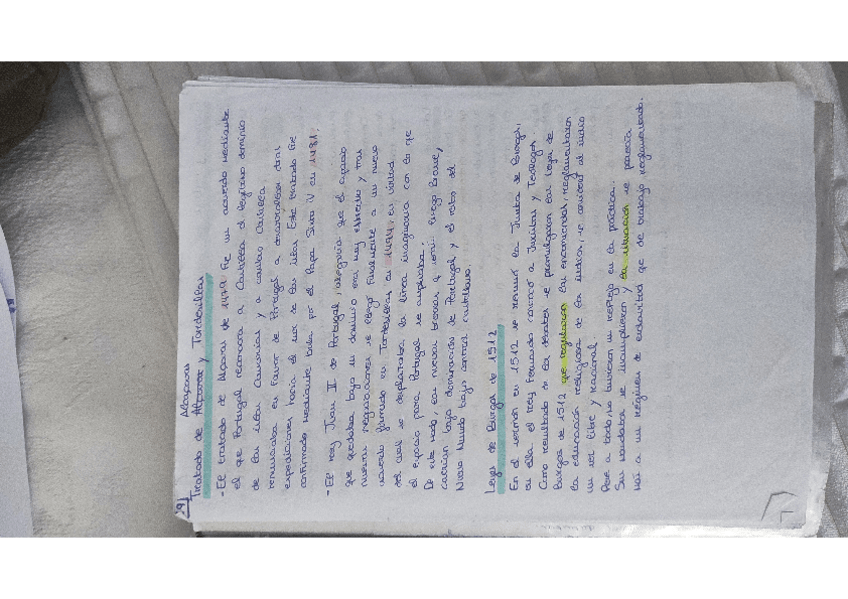 29)
Alcaçovas
Tratado de Alçacovas y Tordesillas
- El tratado de Alçacova de 1479 fue un acuerdo mediante
el que Portugal reconocía a Castilla el legítimo dominio
de las islas Canarias y a cambio Castilla
renunciaba en favor de Portugal a desarrollar otras
expediciones hacia el sur de las islas. Este tratado fue
confirmado mediante bulas por el Papa Sixto IV en 1481.
- El rey Juan II de Portugal, alegaría que el espacio
que quedaba bajo su dominio era muy estrecho y tras
nuevas negociaciones se llegó finalmente a un nuevo
acuerdo firmado en Tordesillas en 1494, en virtud
del cual se desplazaba la línea imaginaria con lo que
el espacio para Portugal se ampliaba.
De este modo, las nuevas tierras q serín luego Brasil,
caerían bajo dominación de Portugal y el resto del
Nuevo Mundo bajo control castellano.
Leyes de Burgos de 1512
En el sermón en 1512 se reunió la Junta de Burgos,
en ella el rey Fernando convocó a Juristas y Teólogos
Como resultado de los debates se promulgaron las leyes de
Burgos de 1512 que regularon las encomiendas, reglamentaron
la educación religiosa de los indios, se consideró al indio
un ser libre y racional.
Pese a todo no tuvieron un reflejo en la práctica.
Sus mandatos se incumplieron y la situación se parecía
más a un régimen de esclavitud que de trabajo reglamentado.